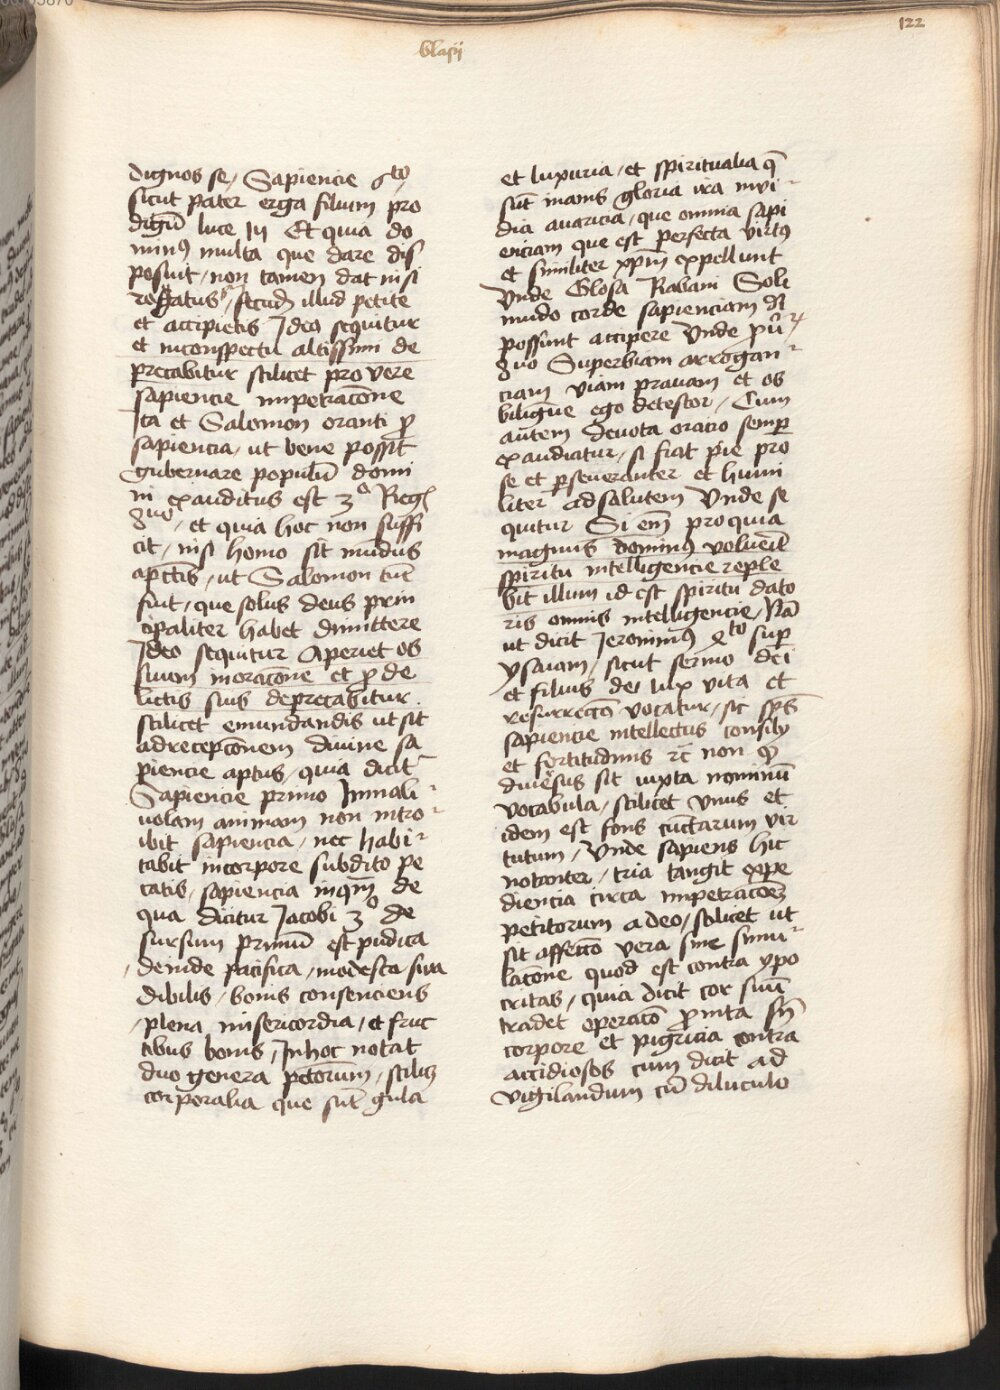 122
blasij
dignos se / Sapiencie 6to
sicut pater erga filium pro
digū luce 15 Et quia do
minꝰ multa que dare dis
posuit / non tamen dat nisi
rogatus / secūdū illud petite
et accipietis Ideo sequitur
et inconspectu altissimi de
precabitur scilicet pro vere
sapiencie impetracōne
Ita et Salomon oranti ꝓ
sapiencia / ut bene possit
gubernare populū domi
ni exauditus est 3º Regꝭ
/ et quia hoc non suffi
cit / nisi homo sit mūdus
apctīs / ut Salomon tūc
fuit / que solus deus prin
cipaliter habet dimittere
Ideo sequitur Aperiet os
suum inoracōne et ꝓ de
lictis suis deprecabitur
scilicet emundandis ut sit
adrecepcōnem diuine sa
piencie aptus / quia dicit
Sapiencie primo Inmali
uolam animam non intro
ibit sapiencia / nec habi
tabit incorpore subdito pe
catis / sapiencia inqm̄ de
qua dicitur Jacobi 3º de
sursum primū est pudica
/ deinde pacifica / modesta sua
dibilis / bonis consenciens
/ plena misericordia / et fruc
tibus bonis / Inhoc notat
duo genera pctōrum / scilꝫ
corporalia que sūt gula
et luxuria / et spiritualia q̄
sūt inanis gloria ira invi
dia auaricia / que omnia sapi
enciam que est perfecta virtꝰ
et similiter xp̄m expellunt
Vnde Glosa Rabani Soli
mūdo corde sapienciam
possunt accipere Vnde
Superbiam arrogan
ciam viam prauam et os
biligue ego detestor / Cum
autem deuota oracio semꝑ
exaudiatur / si fiat pie pro
se et ꝑseueranter et humi
liter ad salutem Vnde se
quitur Si em̄ pro quia
magnus dominꝰ voluerit
spiritu intelligencie reple
bit illum id est spiritu dato
ris omnis intelligencie / Nā
ut dicit Jeronimꝰ suꝑ
ysaiam / sicut sermo dei
et filius dei lux vita et
resurrectō vocatur / sic sp̄s
sapiencie intellectus consilij
et fortitudinis non ꝙ
diuersus sit iuxta nominū
vocabula / scilicet vnus et
idem est fons cūctarum vir
tutum / Vnde sapiens hic
notanter / tria tangit expe
diencia circa impetracōeꝫ
petitorum a deo / scilicet ut
sit affectō vera sine simu
lacōne quod est contra ypo
critas / quia dicit cor suū
tradet operacō ꝓmta
corpore et pigricia contra
accidiosos cum dicit ad
vigilandum cū diluculo